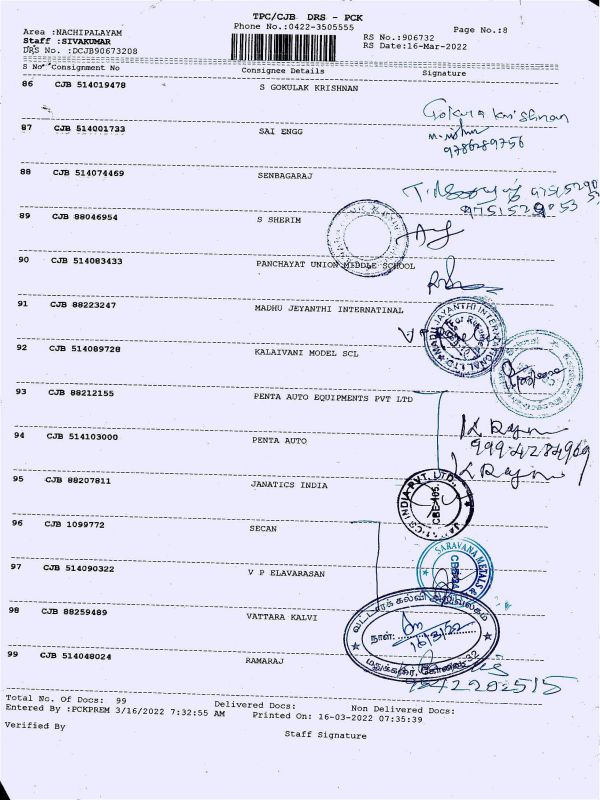 TPC/CJB DRS - PCK
Phone No.:0422-3505555
Page No.:8
Area :NACHIPALAYAM
Staff :SIVAKUMAR
DRS No. :DCJB90673208
RS No.:906732
RS Date:16-Mar-2022
S No Consignment No Consignee Details Signature
86 CJB 514019478 S GOKULAK KRISHNAN
Gokula krishnan
87 CJB 514001733 SAI ENGG
9786289756
88 CJB 514074469 SENBAGARAJ
89 CJB 88046954 S SHERIM
90 CJB 514083433 PANCHAYAT UNION MIDDLE SCHOOL
91 CJB 88223247 MADHU JEYANTHI INTERNATINAL
MADHU JAYANTHI INTERNATIONAL LTD
92 CJB 514089728 KALAIVANI MODEL SCL
93 CJB 88212155 PENTA AUTO EQUIPMENTS PVT LTD
94 CJB 514103000 PENTA AUTO
95 CJB 88207811 JANATICS INDIA
INDIA PVT. LTD.
CBE-105.
96 CJB 1099772 SECAN
SARAVANA METALS
97 CJB 514090322 V P ELAVARASAN
98 CJB 88259489 VATTARA KALVI
வட்டாரக் கல்வி அலுவலகம்
நாள்:
16/3/22
99 CJB 514048024 RAMARAJ
Total No. Of Docs: 99 Delivered Docs: Non Delivered Docs:
Entered By :PCKPREM 3/16/2022 7:32:55 AM Printed On: 16-03-2022 07:35:39
Verified By
Staff Signature